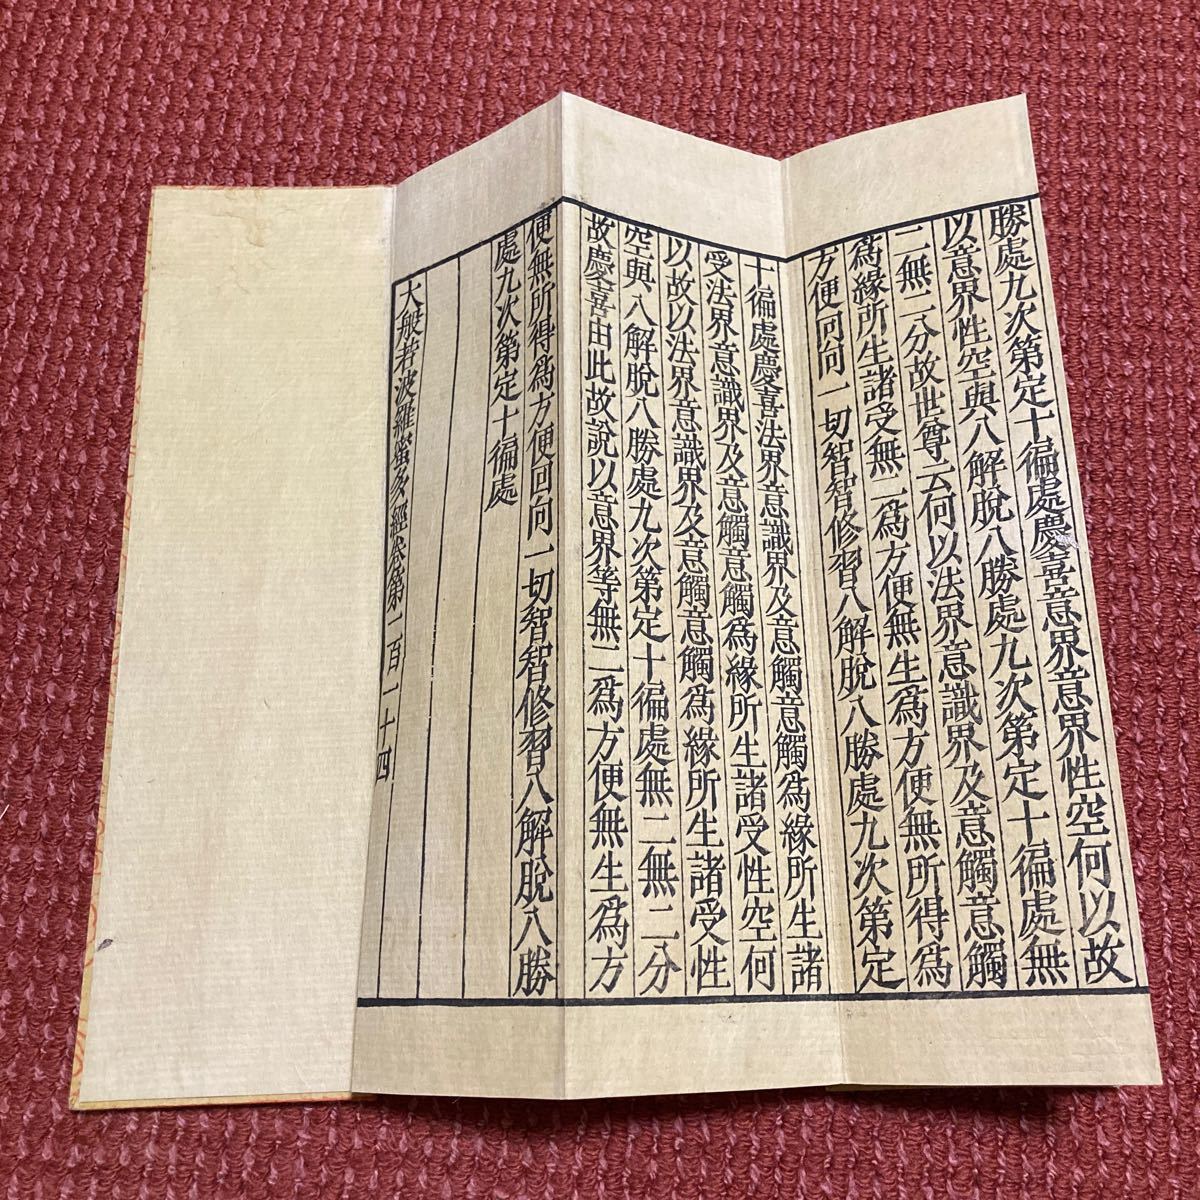 勝處九次第定十徧處慶喜意界意界性空何以故
以意界性空與八解脫八勝處九次第定十徧處無
二無二分故世尊云何以法界意識界及意觸意觸
爲緣所生諸受無二爲方便無生爲方便無所得爲
方便回向一切智智修習八解脫八勝處九次第定
十徧處慶喜法界意識界及意觸意觸爲緣所生諸
受法界意識界及意觸意觸爲緣所生諸受性空何
以故以法界意識界及意觸意觸爲緣所生諸受性
空與八解脫八勝處九次第定十徧處無二無二分
故慶喜由此故說以意界等無二爲方便無生爲方
便無所得爲方便回向一切智智修習八解脫八勝
處九次第定十徧處
大般若波羅蜜多經卷第一百一十四